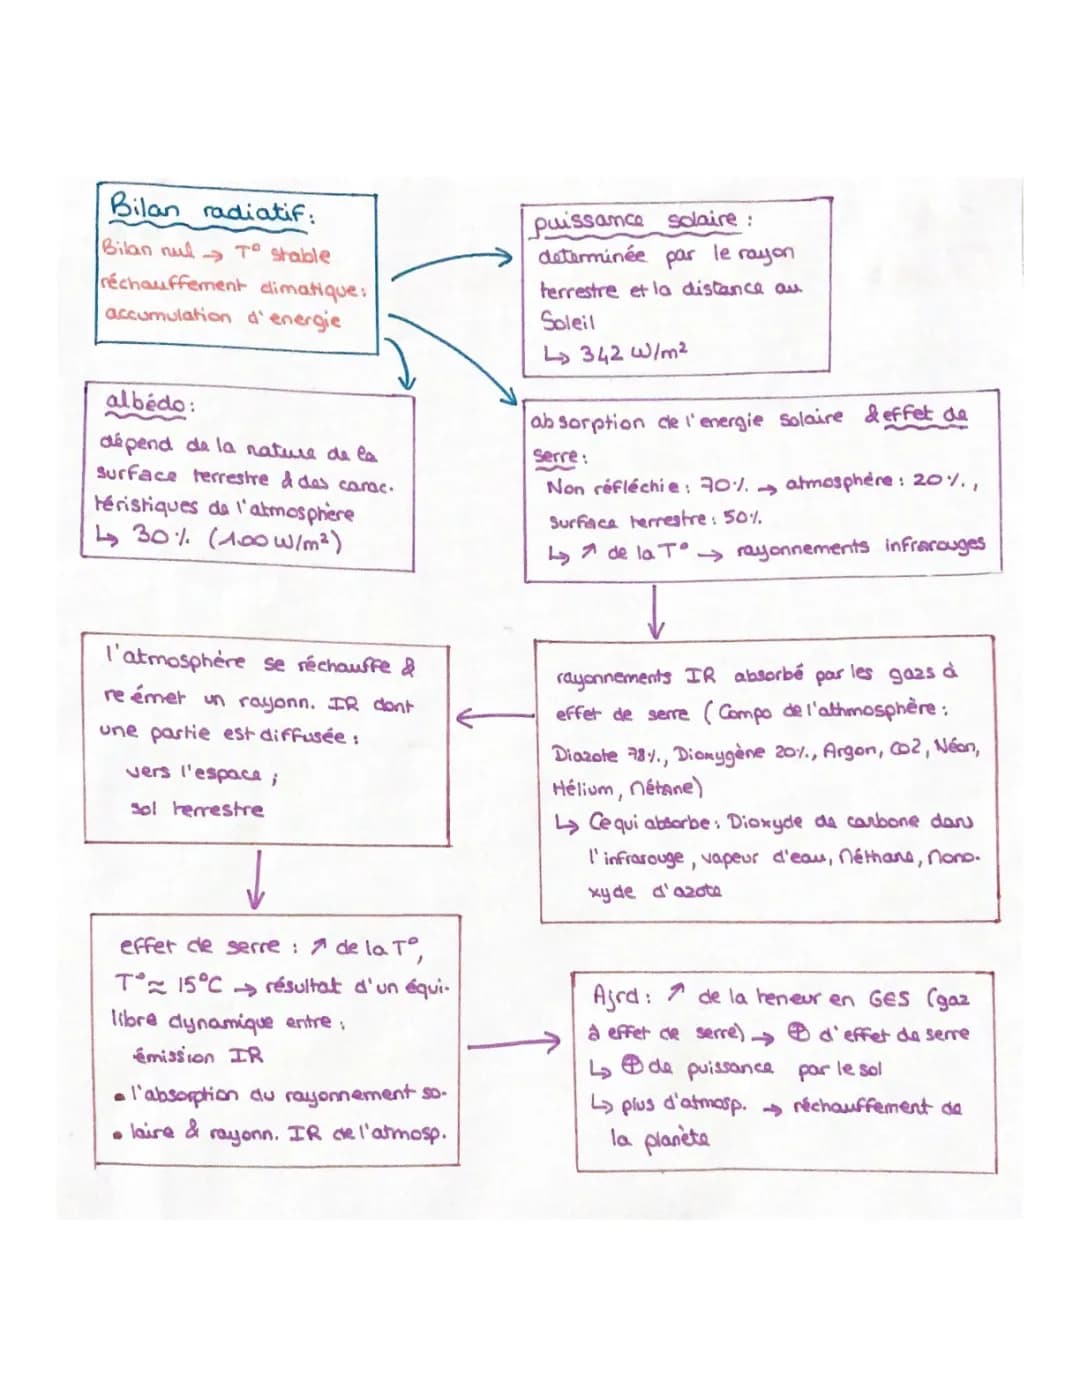 Bilan radiatif:
Bilan nul → T° stable
réchauffement climatique:
accumulation d'energie
puissance solaire :
determinée par le rayon
terrestre et la distance au
Soleil
↳ 342 W/m²
albédo:
dépend de la nature de la
surface terrestre & des carac-
téristiques de l'atmosphère
↳ 30% (100 W/m²)
absorption de l'energie solaire & effet de
serre:
Non réfléchie: 70% → atmosphère: 20%,
surface terrestre: 50%
↳ ↗ de la T° → rayonnements infrarouges
rayonnements IR absorbé par les gazs à
effet de serre (Compo de l'athmosphère:
Diazote 78%, Dioxygène 20%, Argon, CO2, Néon,
Hélium, Métane)
↳ Ce qui absorbe: Dioxyde de carbone dans
l'infrarouge, vapeur d'eau, Méthane, Mono-
xyde d'azote
l'atmosphère se réchauffe &
re émet un rayonn. IR dont
une partie est diffusée:
vers l'espace;
sol terrestre
effet de serre : ↗ de la T°,
T° ≈ 15°C → résultat d'un équi-
libre dynamique entre:
émission IR
• l'absorption du rayonnement so-
• laire & rayonn. IR de l'atmosp.
Ajrd: ↗ de la teneur en GES (gaz
à effet de serre) → ⊕ d'effet de serre
↳ ⊕ de puissance par le sol
↳ plus d'atmosp. → réchauffement de
la planète